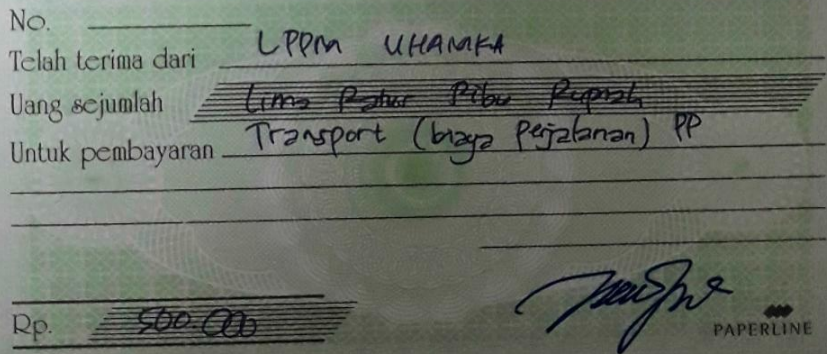 No.
Telah terima dari LPPM UHAMKA
Uang sejumlah Lima Ratus Ribu Rupiah
Untuk pembayaran Transport (biaya perjalanan) PP
Rp. 500.000
PAPERLINE